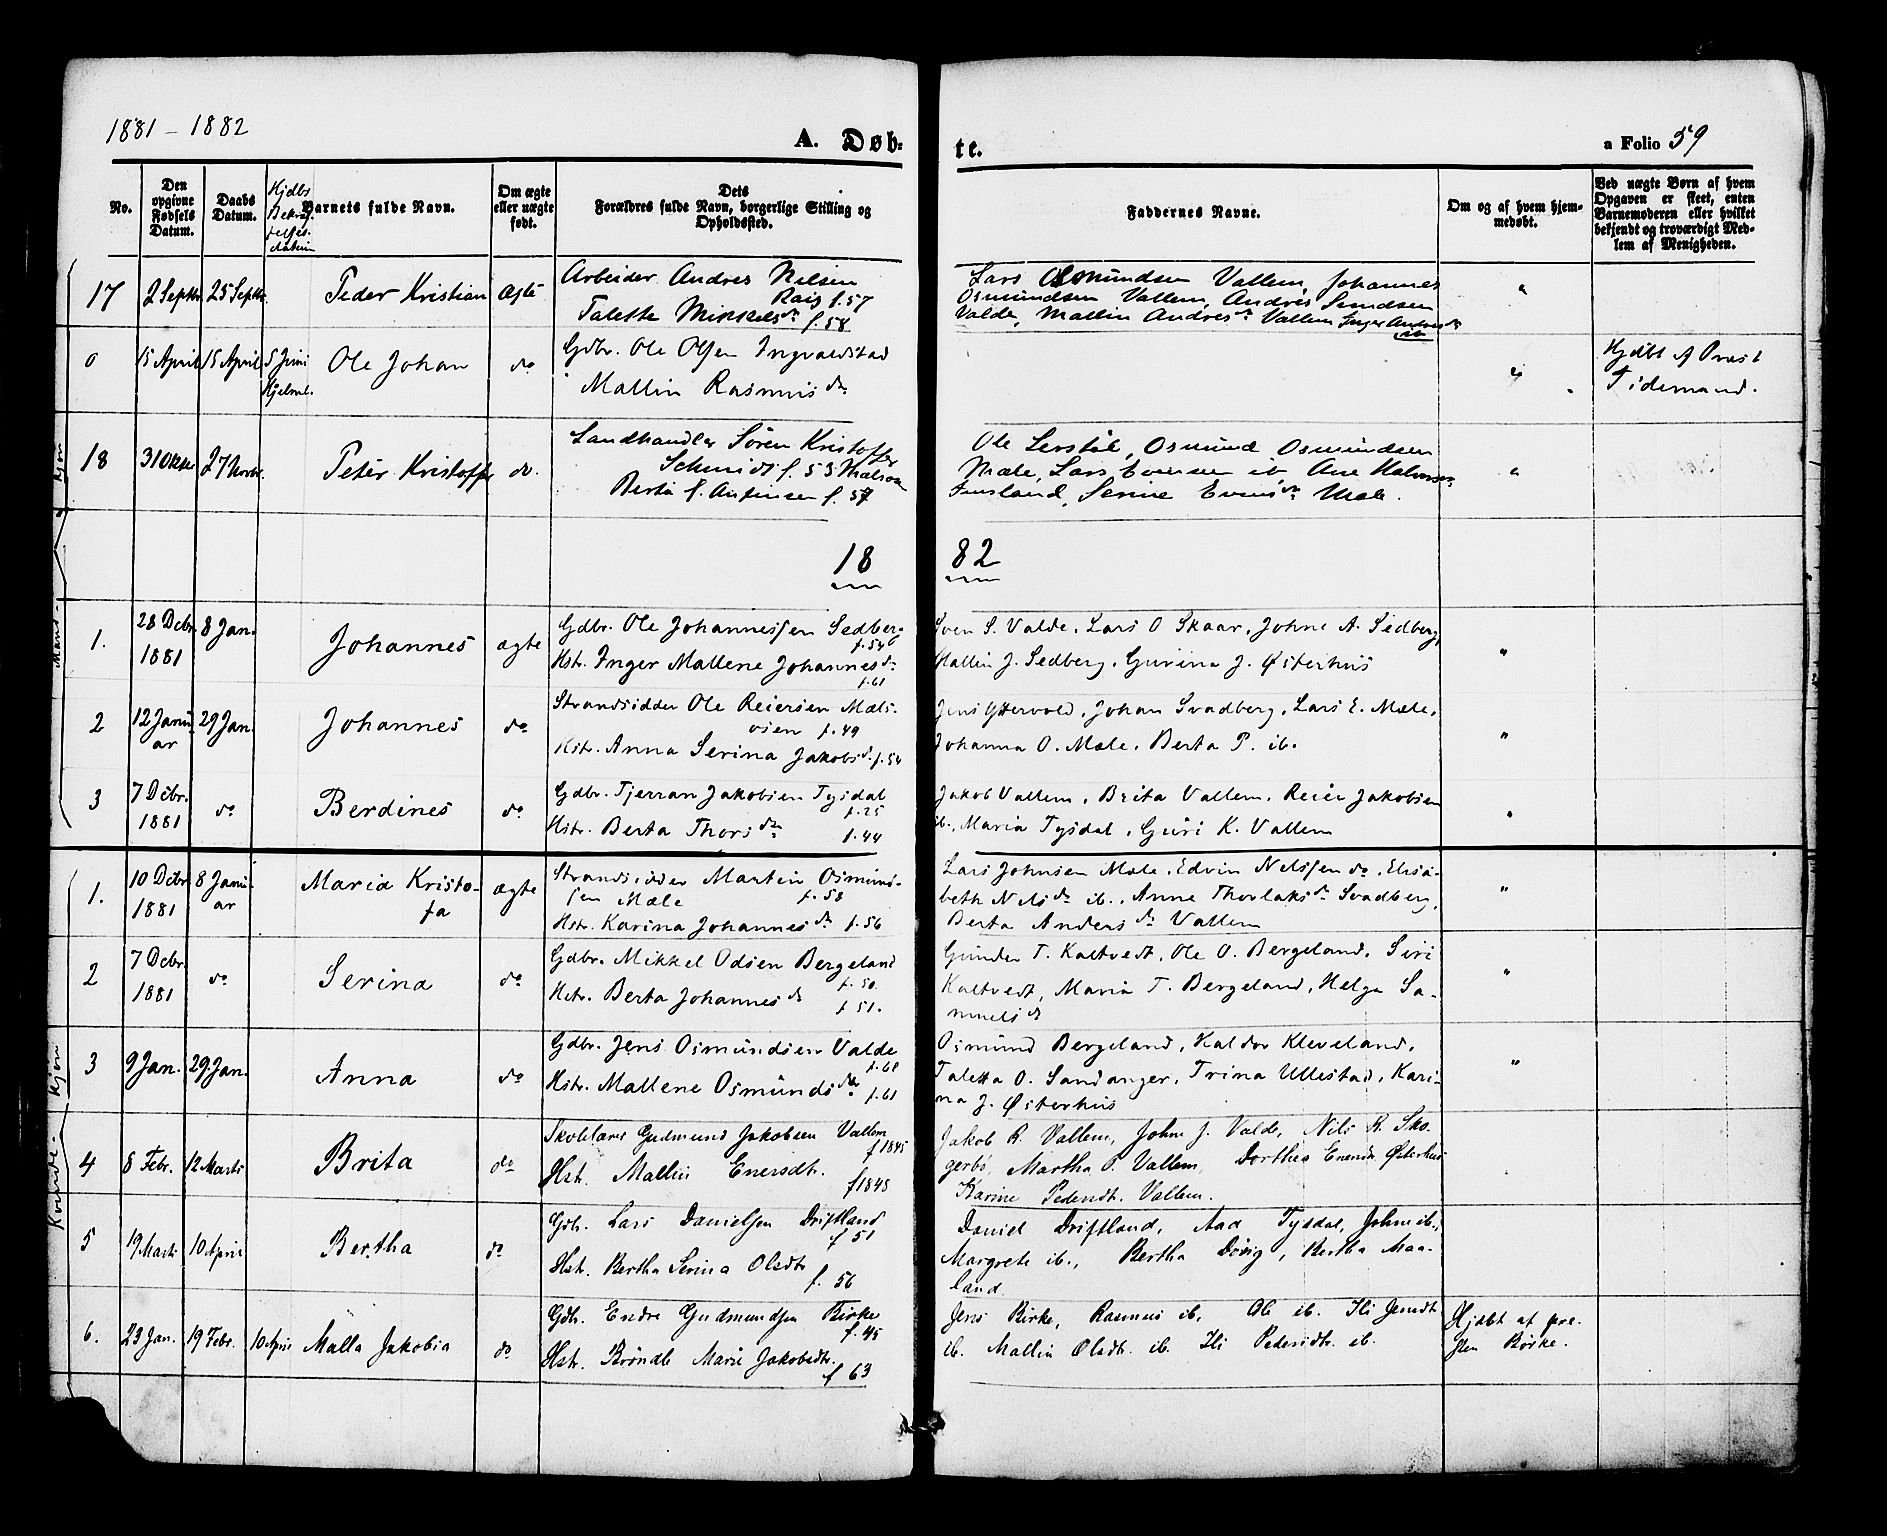 1881 - 1882
A. Døb-
te.
a Folio 59
No.
Den opgivne Fødsels Datum.
Daabs Datum.
Hjdbs Bekræftelses datum
Barnets fulde Navn.
Om ægte eller uægte født.
Dets Forældres fulde Navn, borgerlige Stilling og Opholdssted.
Faddernes Navne.
Om og af hvem hjemmedøbt.
Ved uægte Børn af hvem Opgaven er skeet, enten Barnemoderen eller hvilket bekjendt og troværdigt Medlem af Menigheden.
Mand- Kjøn
17 2 Septbr 25 Septbr. Peder Kristian Ægte
Arbeider Andres Nilsen
f. 57
Talette f. 58
Lars Osmundsen Vallem, Johannes
Osmundsen Vallem, Andres
Valde, Mallin Andresdr Vallem Inger Andresdr
ib
"
0 15 April 15 April 5 Juni Ole Johan do
Gdbr. Ole Olsen Ingvaldstad
Mallin Rasmusdr
"
Hjdbt af Prost
Tidemand.
18 31 Oktbr 27 Novbr. Peter Kristoffer do.
Landhandler Sören Kristoffer
Schmidt f. 53
Berta f. 57
Ole Osmund Osmundsen
Mæle, Lars Evensen ib, Ane
Serine Mæle.
"
18 82
1. 28 Dcbr. 1881 8 Jan. Johannes ægte
Gdbr. Ole Johannessen Sedberg
f. 54
Hstr. Inger Mallene Johannesdr
f. 61
Sven S. Valde, Lars O Skaar, Johne A. Sedberg,
Mallin J. Sedberg. Gurina J. Østerhus
"
2 12 Januar 29 Jan. Johannes do
Strandsidder Ole Reiersen Mæls-
osen f. 49
Hstr. Anna Serina Jakobsd. f. 54
Jens Yttervold, Johan Svadberg, Lars E. Mæle,
Johanna O. Mæle. Berta P. ib.
"
3 7 Dcbr. 1881 do Berdines do
Gdbr. Tjerran Jakobsen Tysdal
f. 25
Hstr. Berta Thorsdr f. 44
Jakob Vallem. Brita Vallem. Reier Jakobsen
ib. Maria Tysdal, Guri K. Vallem
"
Kvinde- Kjøn
1. 10 Dcbr 1881 8 Januar Maria Kristofa ægte
Strandsidder Martin Osmund-
sen Mæle f. 58
Hstr. Karina Johannesdr f. 56
Lars Johnsen Mæle. Edvin Nelssen do, Elisa-
beth Nelsdr ib., Anne Thorlaksdr Svadberg,
Berta Andersdr Vallem
"
2 7 Dcbr. 1881 do Serina do
Gdbr. Mikkel Odsen Bergeland
f. 50.
Hstr. Berta Johannesd
f 51.
Gunder T. Kaltvedt, Ole O. Bergeland. Siri
Kaltvedt, Maria T. Bergeland, Helga Sa-
muelsd
"
3 9 Jan. 29 Jan. Anna do
Gdbr. Jens Osmundsen Valde
Hstr. Mallene Osmundsdr f. 61
Osmund Bergeland, Haldor Kleveland,
Taletta O. Sandanger. Trina Ullestad, Kari-
na J. Østerhus
"
4 8 Febr. 12 Marts Brita do
Skolelærer Gudmund Jakobsen Vallem
f 1845
Hst. Mallin Enersdtr. f 1848
Jakob R. Vallem, Johne J. Valde, Nils R. Sko-
gerbø, Martha P. Vallem, Dorthea Østerhus
Karine Pedersdt. Vallem.
5 19 Marts 10 April Bertha do
Gdb. Lars Danielsen Driftland
f 51
Hst. Bertha Serina Olsdtr
f. 56
Daniel Driftland, Aad Tysdal, Johne ib.,
Margrete ib., Bertha Bertha Maa-
land
6. 23 Jan. 19 Febr. 10 April Malla Jakobia do
Gdb. Endre Gudmundsen Birke
f. 45
Hst. Brøndle Marie Jakobsdtr.
f 63
Jens Birke, Rasmus ib, Ole ib. Ili Jensdt
ib. Mallin Olsdtr. ib. Ili Pedersdtr. ib.
Hjdbt af
Birke.